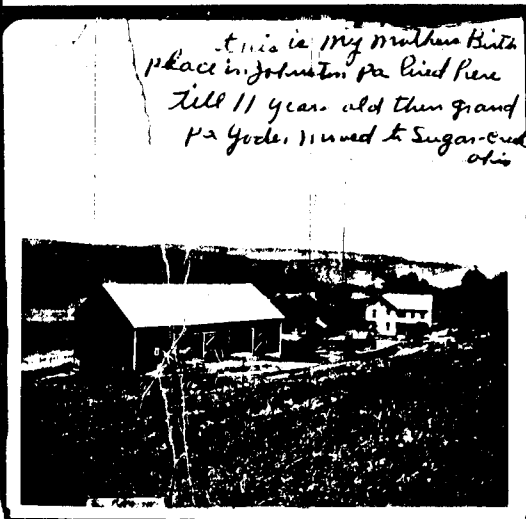 this is my mothers Birth
place in Johnston pa lived here
till 11 years old then grand
pa Yoder moved to Sugar-creek
ohio